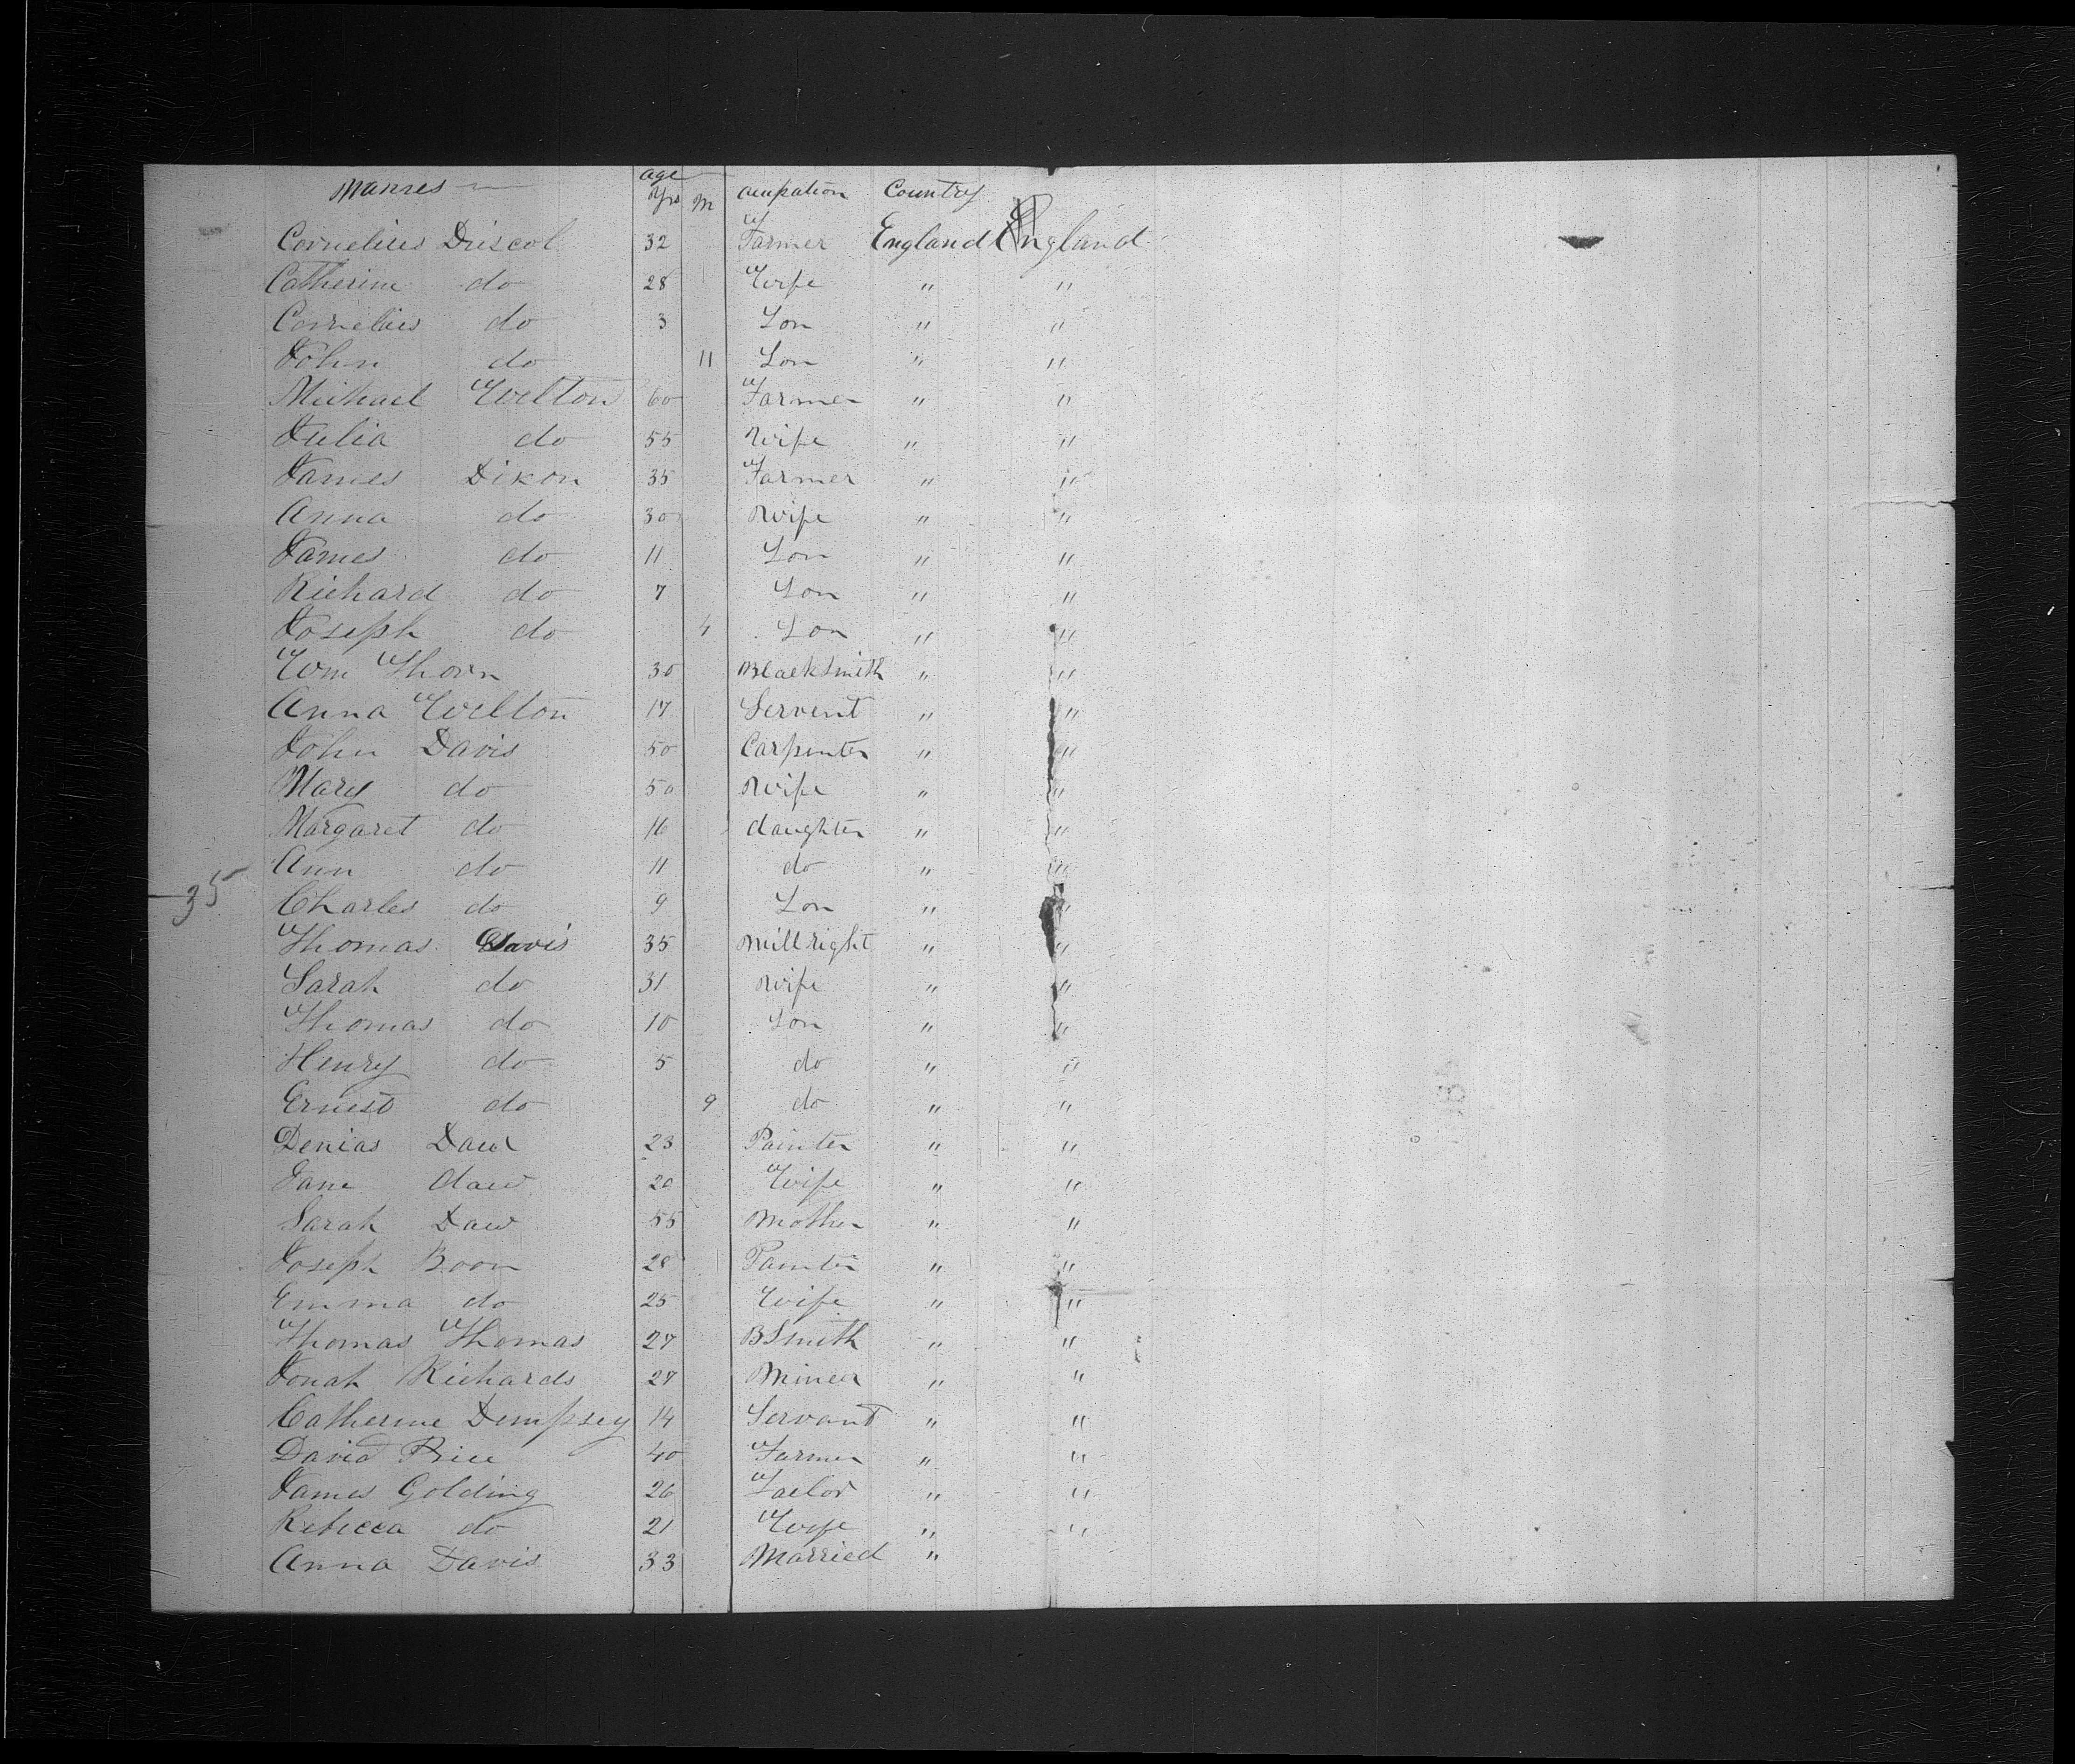 Names age
Yrs m occupation Country
Cornelius Driscol 32 Farmer England England
Catherine do 28 Wife " "
Cornelius do 3 Son " "
John do 11 Son " "
Michael Welton 60 Farmer " "
Julia do 55 Wife " "
James Dixon 35 Farmer " "
Anna do 30 Wife " "
James do 11 Son " "
Richard do 7 Son " "
Joseph do 4 Son " "
Wm Thorn 30 Blacksmith " "
Anna Welton 17 Servent " "
John Davis 50 Carpenter " "
Mary do 50 Wife " "
Margaret do 16 daughter " "
Ann do 11 do " "
35 Charles do 9 Son " "
Thomas Davis 35 Millright " "
Sarah do 31 Wife " "
Thomas do 10 Son " "
Henry do 5 do " "
Ernest do 9 do " "
Denias Daw 23 Painter " "
Jane daw 20 Wife " "
Sarah Daw 55 Mother " "
Joseph Boon 28 Painter " "
Emma do 25 Wife " "
Thomas Thomas 27 BSmith " "
Jonah Richards 27 Miner " "
Catherine Dempsey 14 Servant " "
David Price 40 Farmer " "
James Golding 26 Tailor " "
Rebecca do 21 Wife " "
Anna Davis 33 Married "